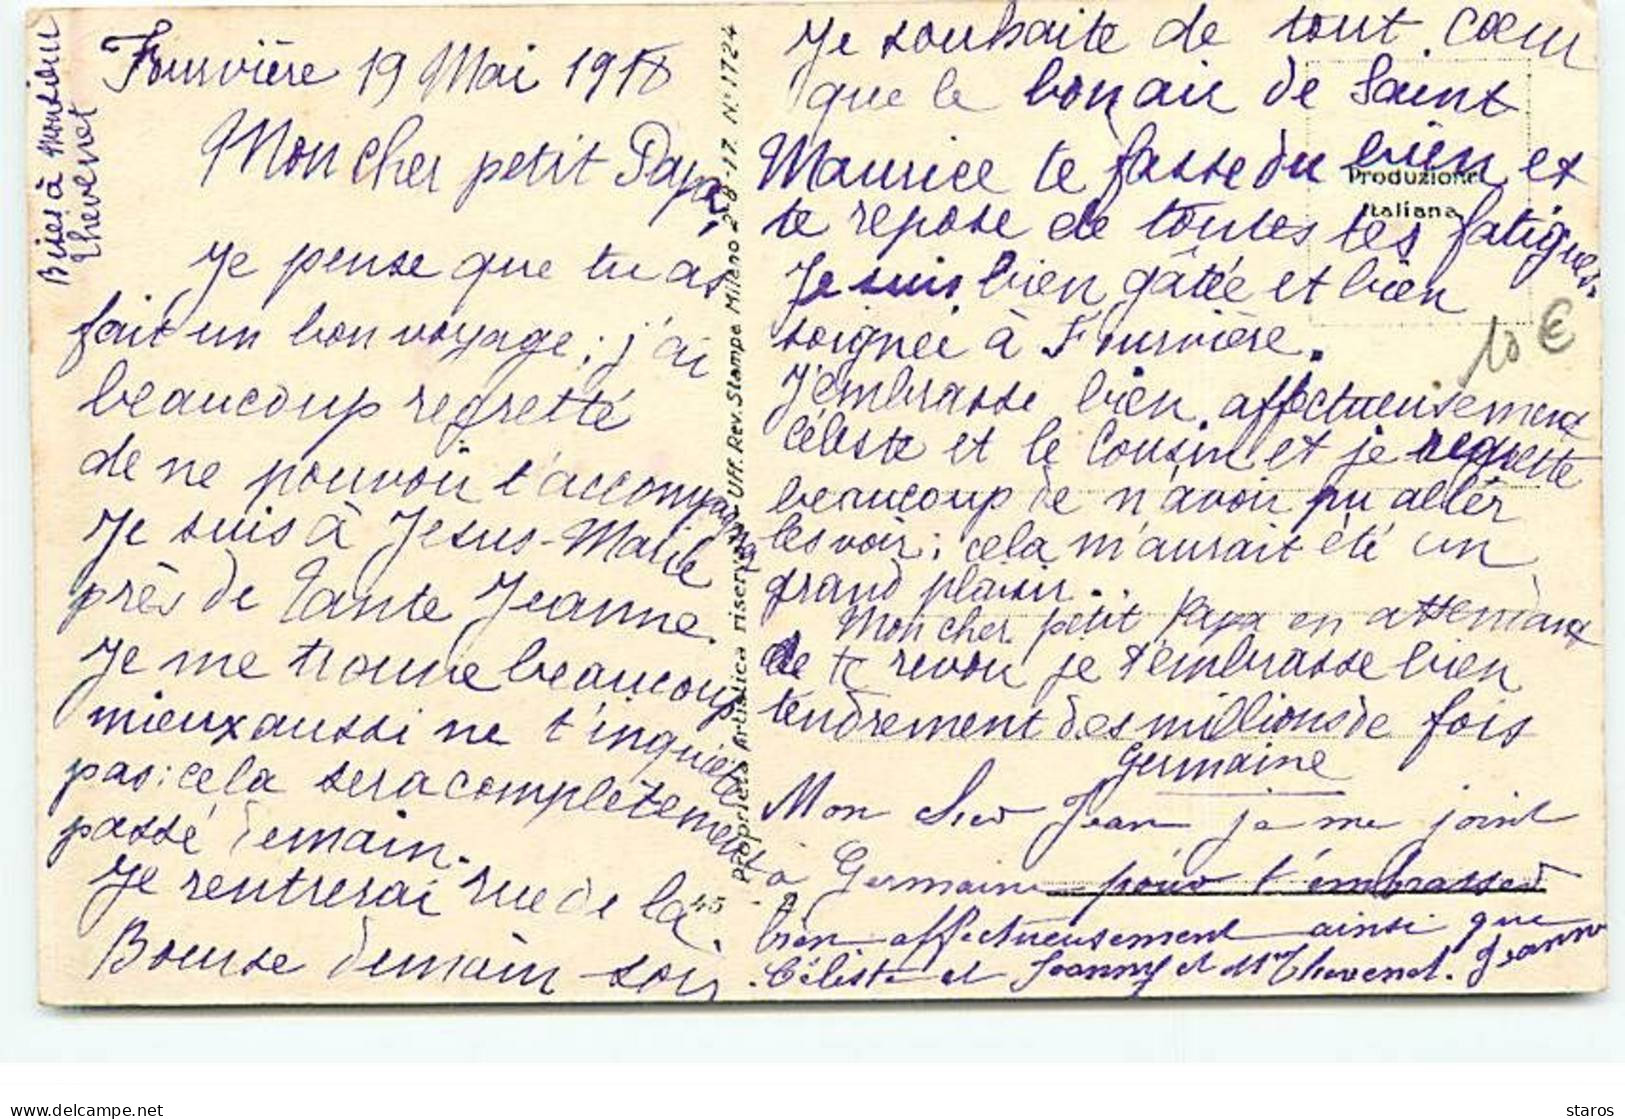 Bises à Monsieur
Thevenet
Fourvière 19 Mai 1918
Mon cher petit Papa,
Je pense que tu as
fait un bon voyage ; j'ai
beaucoup regretté
de ne pouvoir t'accompagner
Je suis à Jésus-Marie
près de Tante Jeanne.
Je me trouve beaucoup
mieux aussi ne t'inquiète
pas : cela sera complètement
passé demain.
Je rentrerai rue de la
Bourse demain soir.
Proprietà Artistica riservata Uff. Rev. Stampe Milano 2-8-17. N.° 1724
45 - A
Je souhaite de tout cœur
que le bon air de Saint
Maurice te fasse du bien et
te repose de toutes tes fatigues.
Je suis bien gâtée et bien
soignée à Fourvière.
J'embrasse bien affectueusement
Céleste et le Cousin et je regrette
beaucoup de n'avoir pu aller
les voir ; cela m'aurait été un
grand plaisir.
Mon cher petit Papa en attendant
de te revoir je t'embrasse bien
tendrement des millions de fois
Germaine
Mon Jean je me joint
à Germaine pour t'embrasser
bien affectueusement ainsi que
Céliste et Jeanny et Mr Thevenet. Jeanne
Produzione
Italiana
10 €
delcampe.net
staros